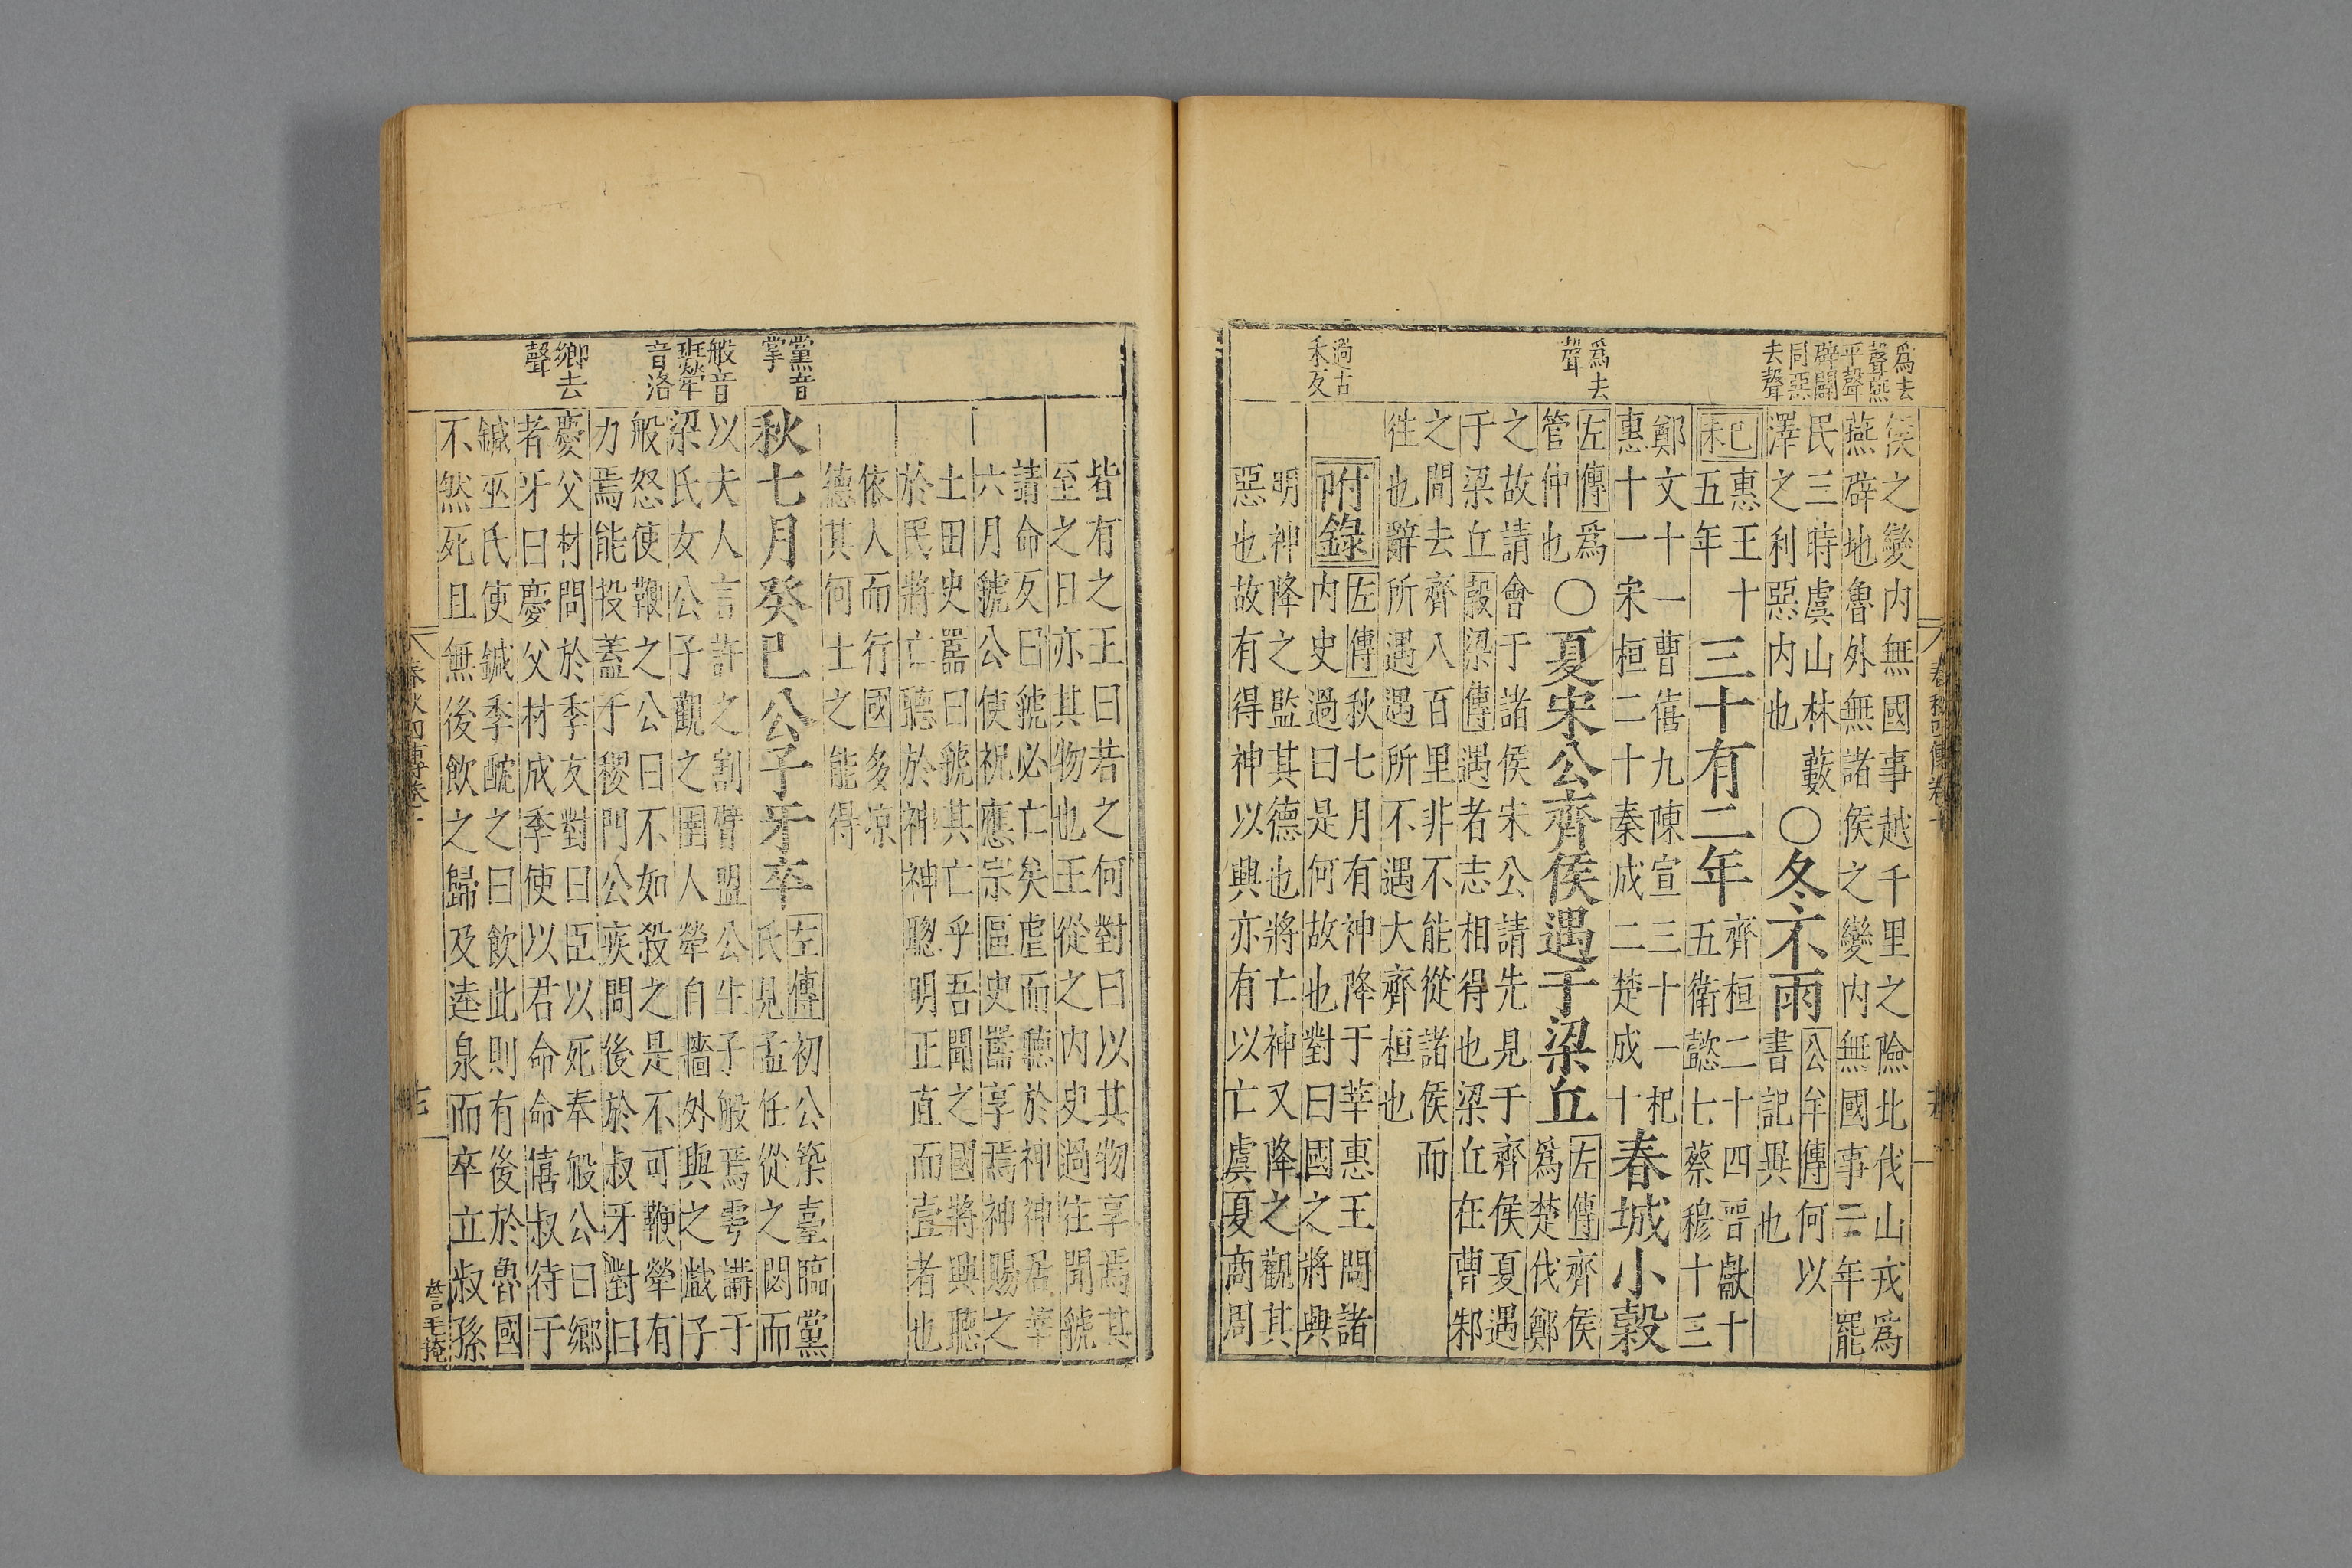 爲去
聲燕
平聲
辟闢
同惡
去聲
爲去
聲
過古
禾反
侯之變内無國事越千里之險北伐山戎爲
燕辟地魯外無諸侯之變内無國事二年罷
民三時虞山林藪
澤之利惡内也
〇冬不雨
公羊傳何以
書記異也
己未
惠王十
五年
三十有二年
齊桓二十四晉獻十
五衛懿七蔡穆十三
鄭文十一曹僖九陳宣三十一杞
惠十一宋桓二十秦成二楚成十
春城小穀
左傳爲
管仲也
〇夏宋公齊侯遇于梁丘
左傳齊侯
爲楚伐鄭
之故請會于諸侯宋公請先見于齊侯夏遇
于梁丘穀梁傳遇者志相得也梁丘在曹邾
之間去齊八百里非不能從諸侯而
往也辭所遇遇所不遇大齊桓也
附錄
左傳秋七月有神降于莘惠王問諸
内史過曰是何故也對曰國之將興
明神降之監其德也將亡神又降之觀其
惡也故有得神以興亦有以亡虞夏商周
黨音
掌
般音
班犖
音洛
鄉去
聲
皆有之王曰若之何對曰以其物享焉其
至之日亦其物也王從之内史過往聞虢
請命反曰虢必亡矣虐而聽於神神居莘
六月虢公使祝應宗區史嚚享焉神賜之
土田史嚚曰虢其亡乎吾聞之國將興聽
於民將亡聽於神神聰明正直而壹者也
依人而行國多凉
德其何土之能得
秋七月癸巳公子牙卒
左傳初公築臺臨黨
氏見孟任從之閟而
以夫人言許之割臂盟公生子般焉雩講于
梁氏女公子觀之圉人犖自牆外與之戲子
般怒使鞭之公曰不如殺之是不可鞭犖有
力焉能投蓋于稷門公疾問後於叔牙對曰
慶父材問於季友對曰臣以死奉般公曰鄉
者牙曰慶父材成季使以君命命僖叔待于
鍼巫氏使鍼季酖之曰飲此則有後於魯國
不然死且無後飲之歸及逵泉而卒立叔孫
春秋四傳卷